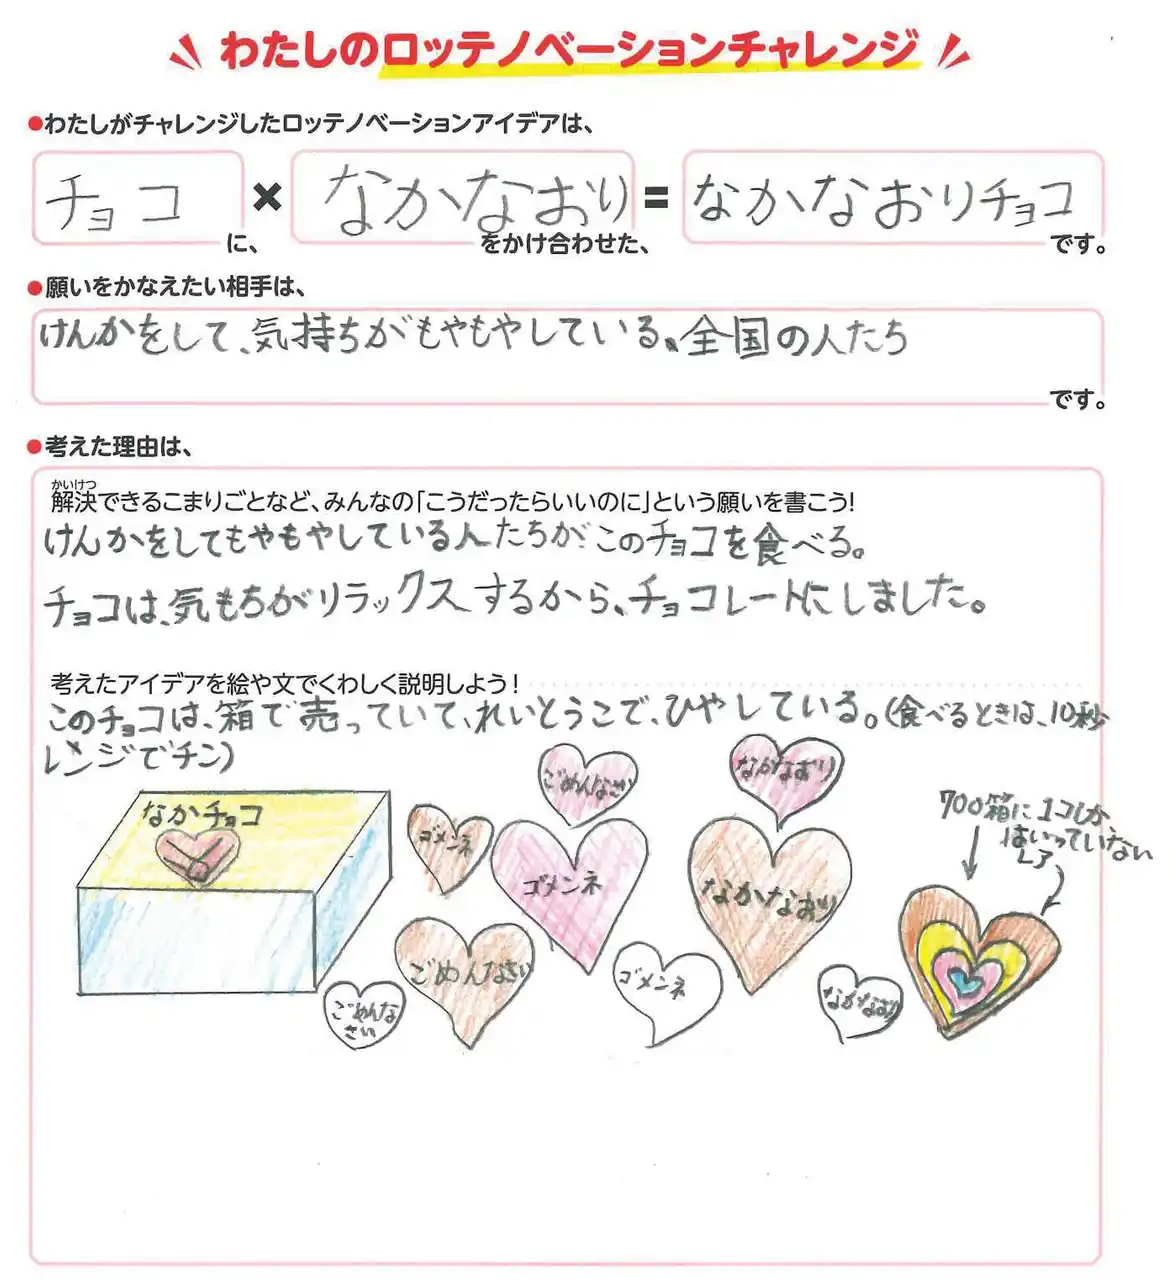 わたしのロッテノベーションチャレンジ
●わたしがチャレンジしたロッテノベーションアイデアは、
チョコ に、 × なかなおり をかけ合わせた、 = なかなおりチョコ です。
●願いをかなえたい相手は、
けんかをして、気持ちがもやもやしている、全国の人たち
です。
●考えた理由は、
かいけつ
解決できるこまりごとなど、みんなの「こうだったらいいのに」という願いを書こう!
けんかをしてもやもやしている人たちがこのチョコを食べる。
チョコは、気もちがリラックスするから、チョコレートにしました。
考えたアイデアを絵や文でくわしく説明しよう!
このチョコは、箱で売っていて、れいとうこで、ひやしている。(食べるときは、10秒
レンジでチン)
なかチョコ
ゴメンネ
ごめんなさい
ゴメンネ
ごめんなさい
ごめんな
さい
ゴメンネ
なかなおり
なかなおり
なかなおり
700箱に1コしか
はいっていない
レア